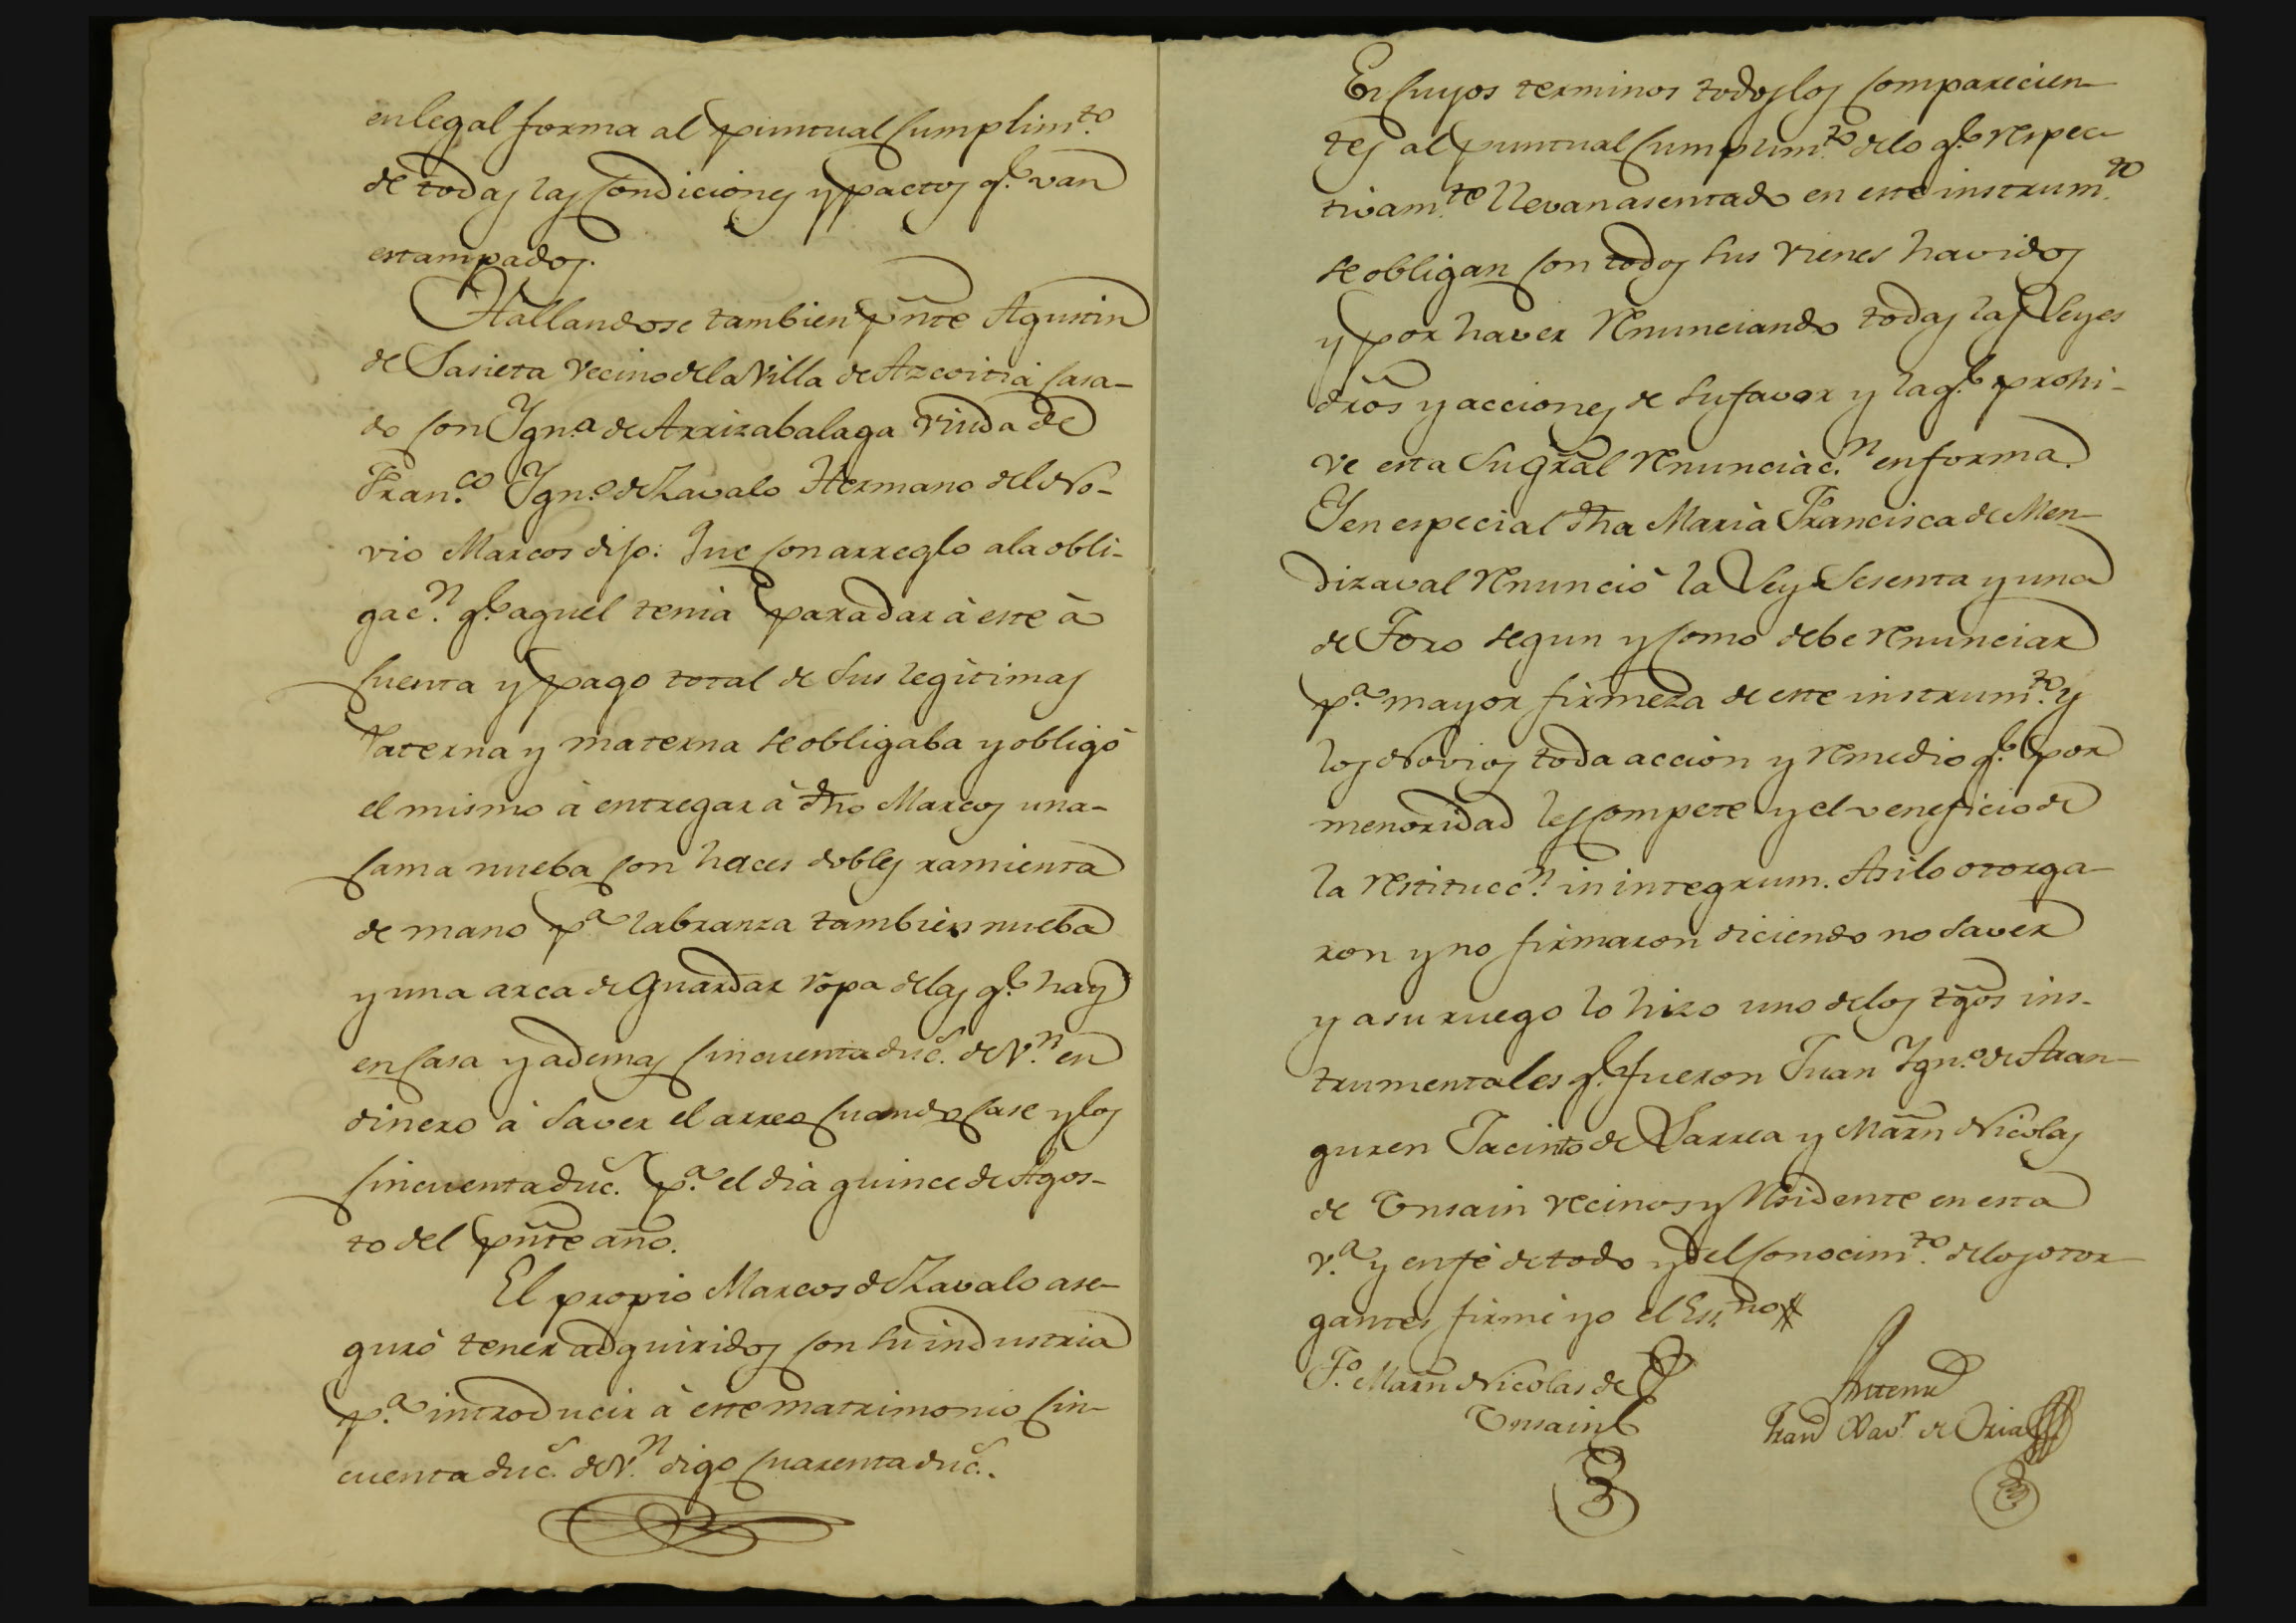 en legal forma al puntual cumplim.to
de todas las condiciones y pactos q.e van
estampados.
Hallandose tambien pnte Agustin
de Sasieta vecino de la Villa de Azcoitia casa-
do con Ygn.a de Arrizabalaga viuda de
Fran.co Ygn.o de Zavalo Hermano del No-
vio Marcos dijo: Que con arreglo a la obli-
gac.n q.e aquel tenia para dar à este à
cuenta y pago total de sus legitimas
Paterna y materna se obligaba y obligò
el mismo à entregar à dho Marcos una-
cama nueba con haces dobles ramienta
de mano p.a labranza tambien nueba
y una arca de guardar ropa de las q.e hay
en casa y ademas cincuenta duc.s de V.n en
dinero à saver el arreo cuando case y los
cincuenta duc.s p.a el dia quince de Agos-
to del pnte año.
El propio Marcos de Zavalo ase-
gurò tener adquiridos con su industria
p.a introducir à este matrimonio cin-
cuenta duc.s de V.n digo cuarenta duc.s.
En cuyos terminos todos los comparecien-
tes al puntual cumplim.to de lo q.e respec-
tivam.te llevan asentado en este instrum.to
se obligan con todos sus vienes havidos
y por haver renunciando todas las Leyes
dros y acciones de su favor y la q.e prohi-
ve esta su gral renunciàc.n en forma.
Y en especial dha Maria Francisca de Men-
dizaval renunciò la Ley sesenta y una
de Toro segun y como debe renunciar
p.a mayor firmeza de este instrum.to y
los Novios toda acciòn y remedio q.e por
menoridad les compete y el veneficio de
la restitucc.n in integrum. Asi lo otorga-
ron y no firmaron diciendo no saver
y a su ruego lo hizo uno de los tgos ins-
trumentales q.e fueron Juan Ygn.o de Aran-
guren Jacinto de Larrea y Marn Nicolas
de Unsain vecinos y residente en esta
V.a y en fè de todo y del conocim.to de los otor-
gantes firmè yo el Ess.no
F.o Marn Nicolas de
Unsain
Antemi
Fran Xav.r de Oria